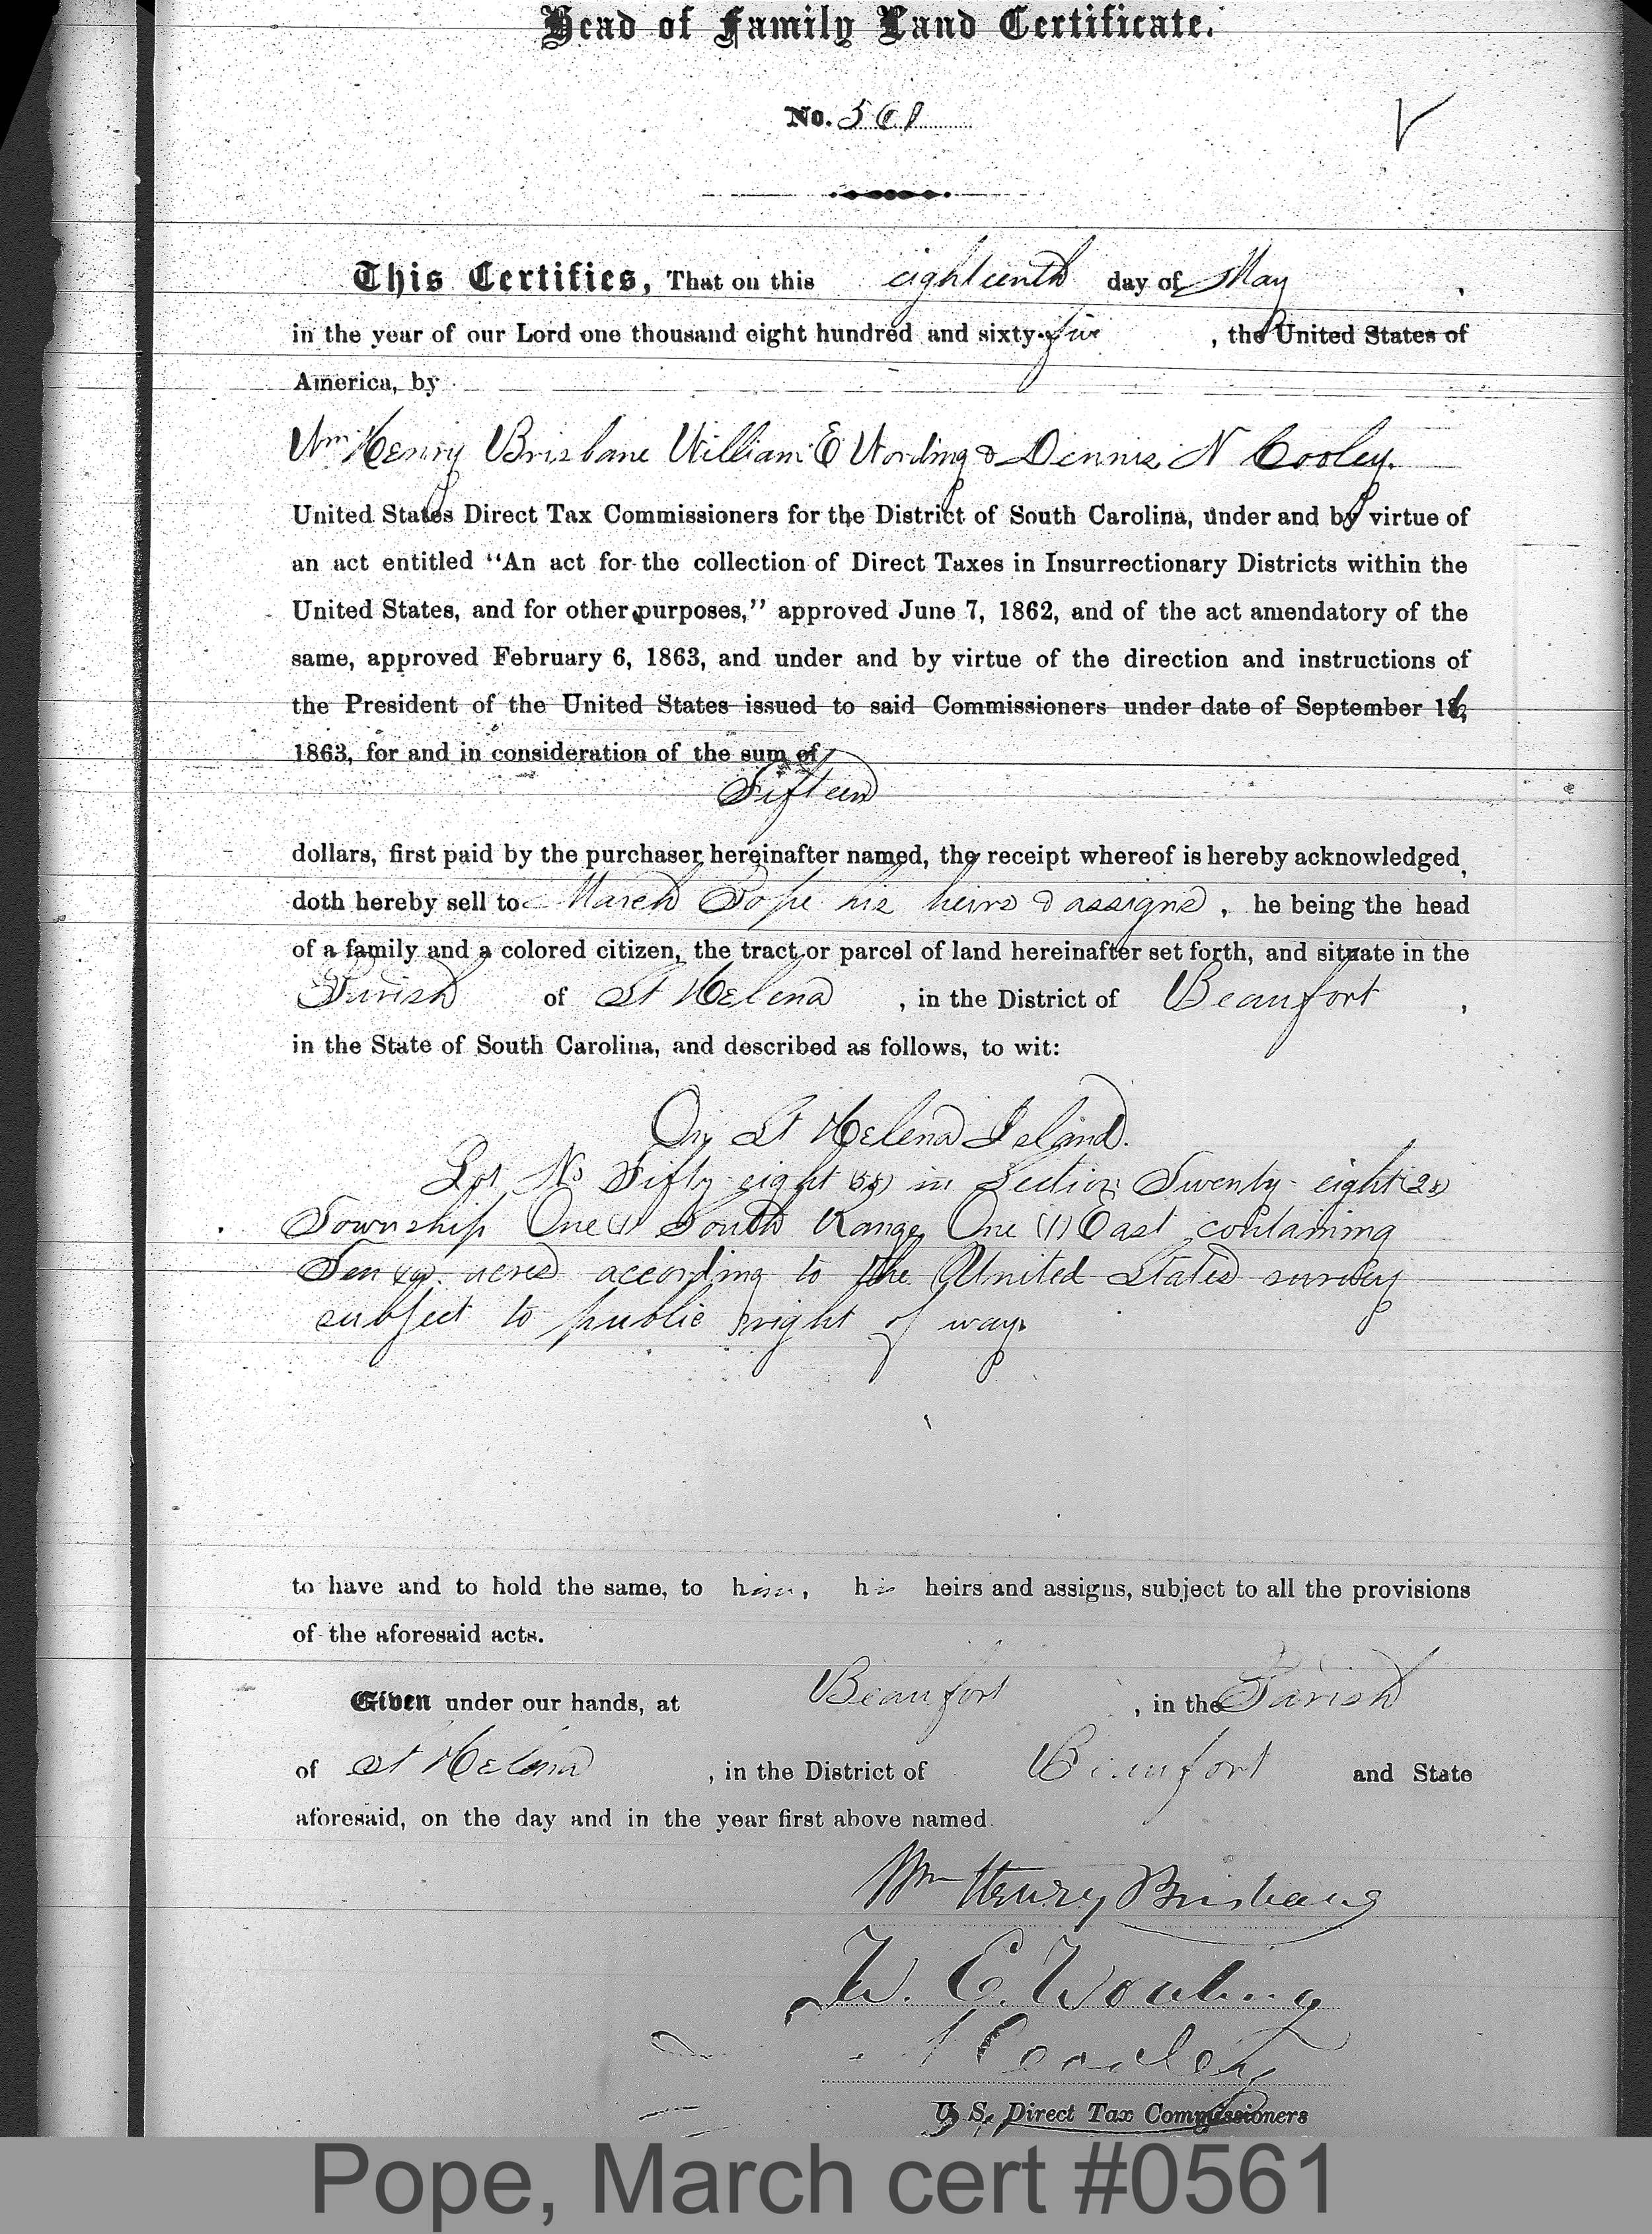 Head of Family Land Certificate.
No. 561
This Certifies, That on this eighteenth day of May,
in the year of our Lord one thousand eight hundred and sixty-five, the United States of
America, by
Wm Henry Brisbane William E Wording & Dennis N Cooley.
United States Direct Tax Commissioners for the District of South Carolina, under and by virtue of
an act entitled “An act for the collection of Direct Taxes in Insurrectionary Districts within the
United States, and for other purposes,” approved June 7, 1862, and of the act amendatory of the
same, approved February 6, 1863, and under and by virtue of the direction and instructions of
the President of the United States issued to said Commissioners under date of September 16,
1863, for and in consideration of the sum of
Fifteen
dollars, first paid by the purchaser hereinafter named, the receipt whereof is hereby acknowledged,
doth hereby sell to March Pope his heirs & assigns, he being the head
of a family and a colored citizen, the tract or parcel of land hereinafter set forth, and situate in the
Parish of St Helena, in the District of Beaufort,
in the State of South Carolina, and described as follows, to wit:
On St Helena Island.
Lot No Fifty-eight (58) in Section Twenty-eight (28)
Township One (1) South Range One (1) East containing
Ten (10) acres according to the United States survey
subject to public right of way.
to have and to hold the same, to him, his heirs and assigns, subject to all the provisions
of the aforesaid acts.
Given under our hands, at Beaufort, in the Parish
of St Helena, in the District of Beaufort and State
aforesaid, on the day and in the year first above named.
Wm Henry Brisbane
W. E. Wording
Cooley
U. S. Direct Tax Commissioners
Pope, March cert #0561